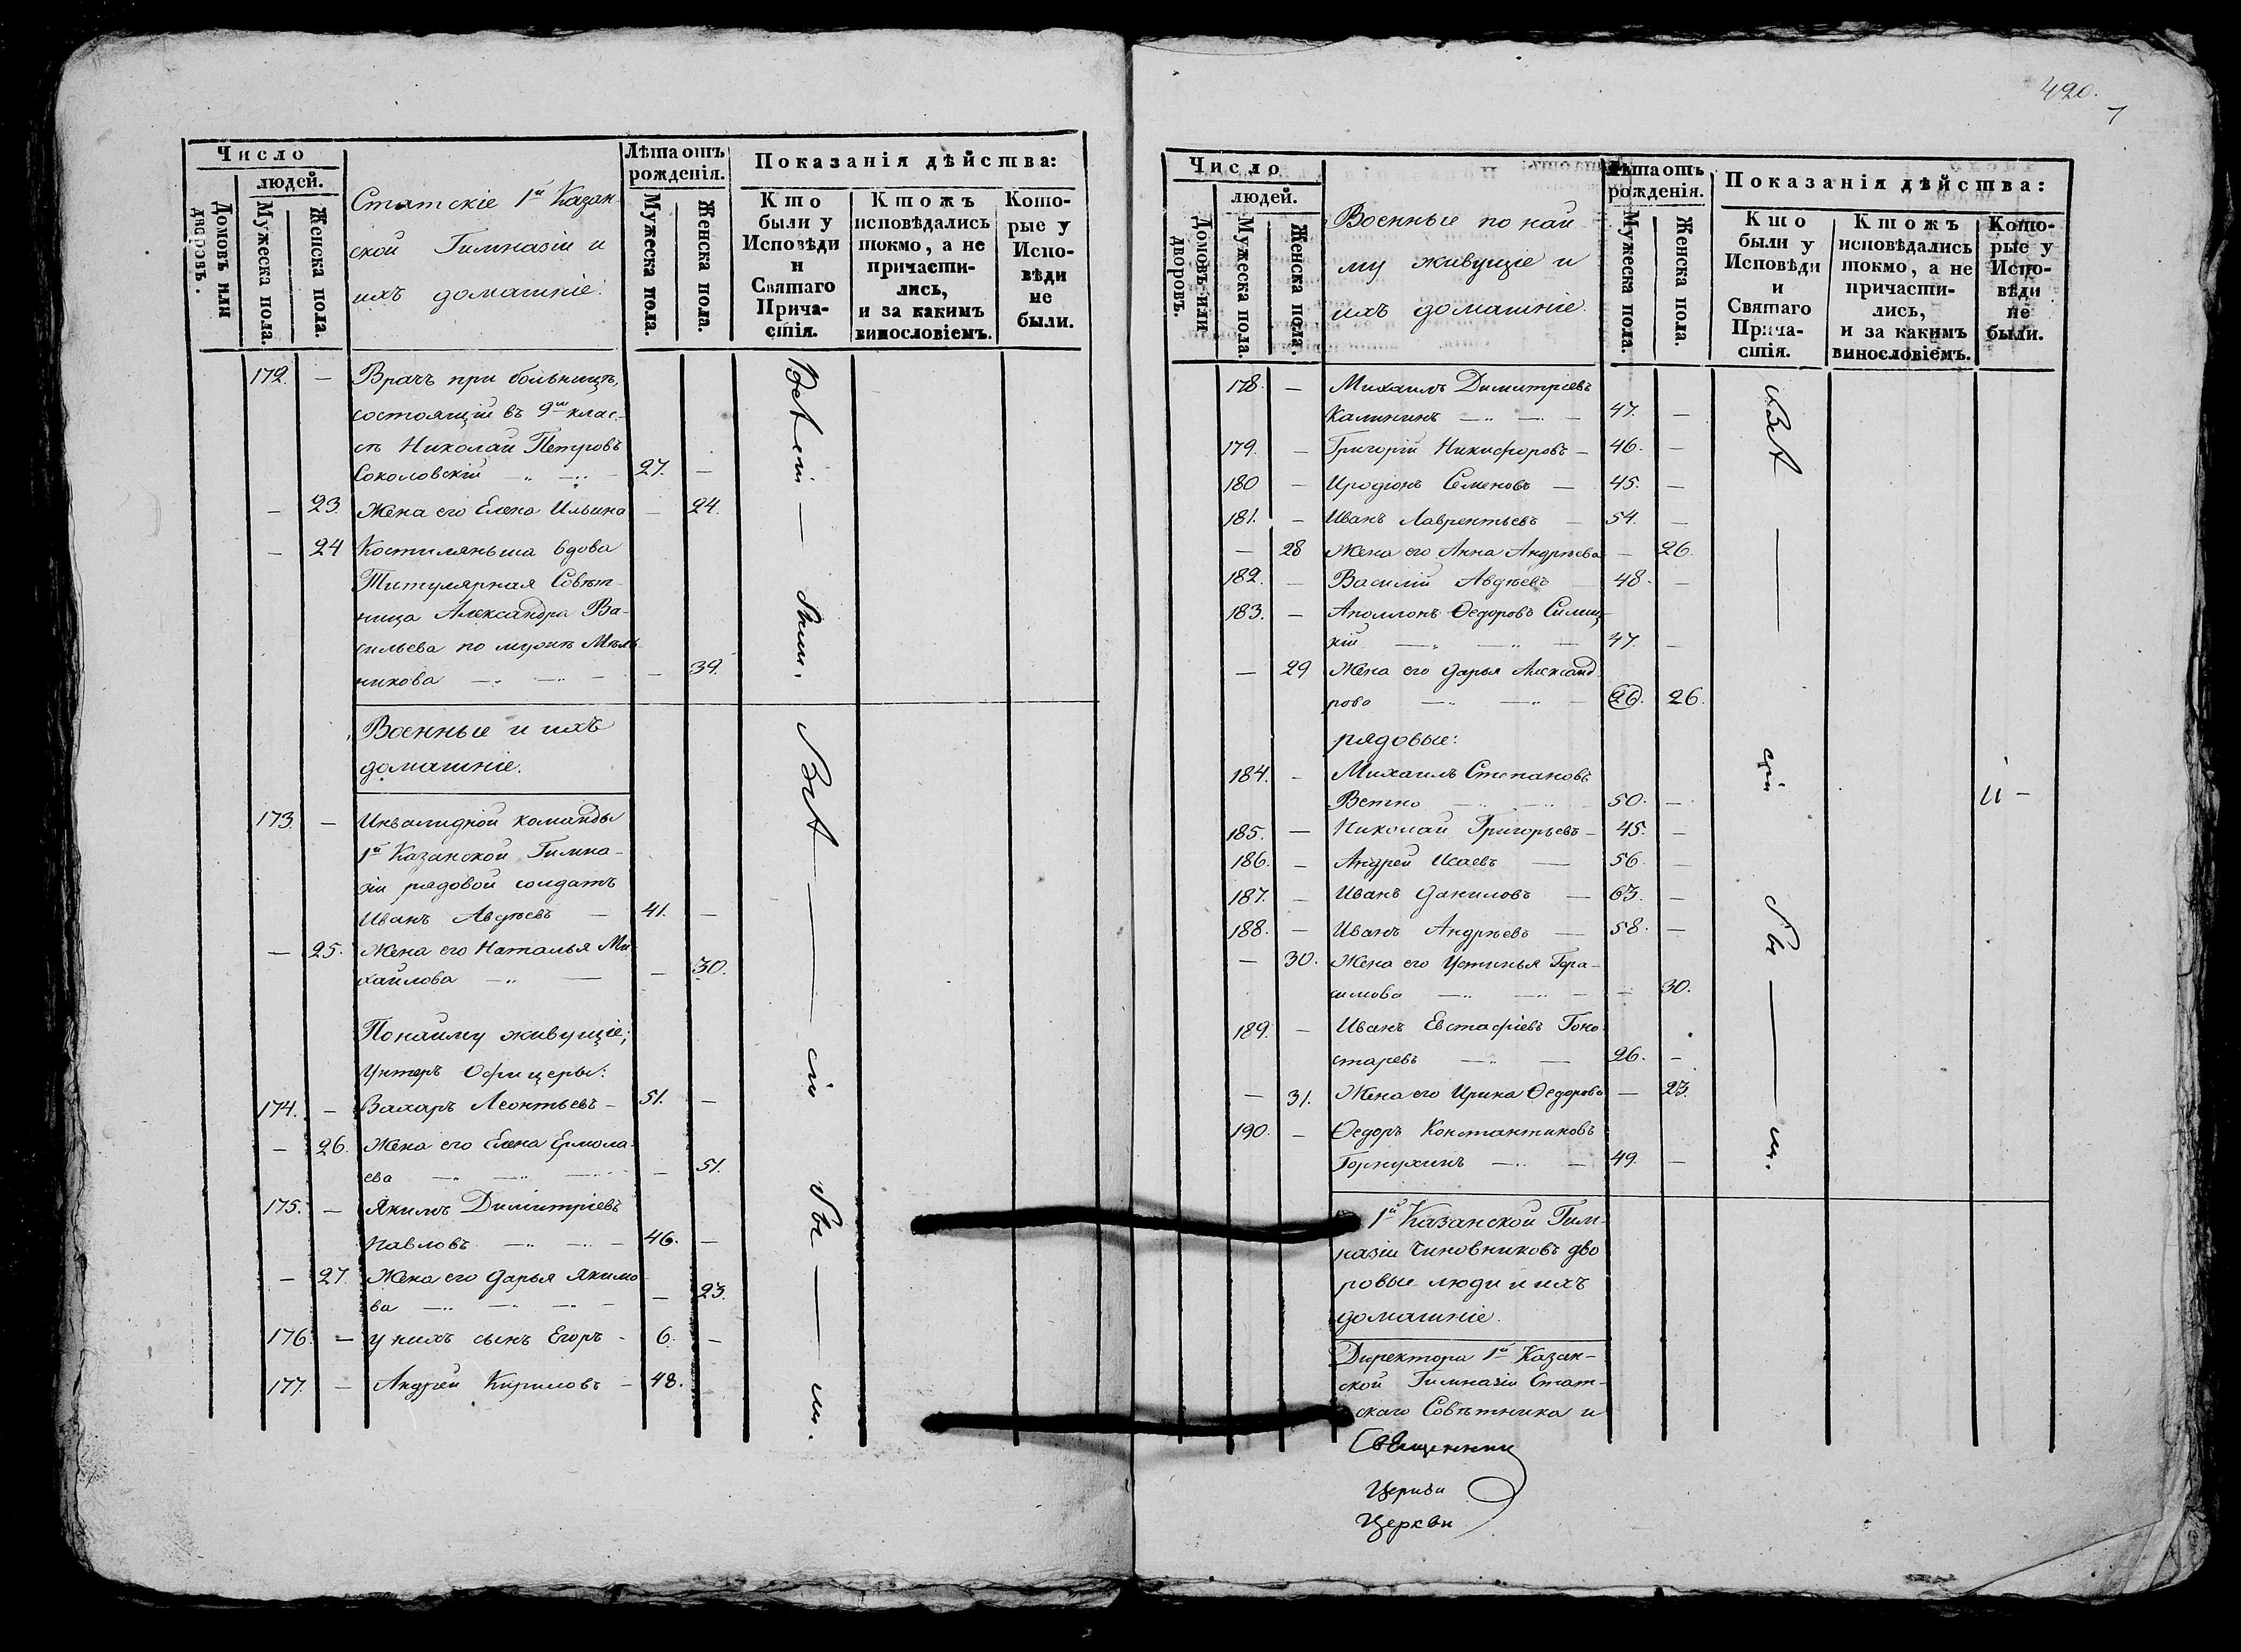 Число
людей.
Домовъ или дворовъ
Мужеска пола.
Женска пола.
Статскіе 1й Казан-
ской Гимназіи и
ихъ домашніе.
Лѣта отъ
рожденія.
Мужеска пола.
Женска пола.
Показанія дѣйства:
Кто
были у
Исповѣди
и
Святаго
Прича-
стія.
Ктожъ
исповѣдались
токмо, а не
причасти-
лись,
и за какимъ
винословіемъ.
Кото-
рые у
Испо-
вѣди
не
были.
172. — Врачъ при больницѣ,
состоящій въ 9м клас-
сѣ Николай Петровъ
Соколовскій 27. —
— 23. Жена его Елена Ильина — 24.
— 24 Костиляньша вдова
Титулярная Совѣт-
ница Александра Ва-
сильева по мужѣ Мѣль-
никова — 39.
Военные и ихъ
домашніе.
173. — Инвалидной команды
1й Казанской Гимна-
зіи рядовой солдатъ
Иванъ Авдѣевъ — 41. —
— 25. Жена его Наталья Ми-
хайлова — 30.
По найму живущіе;
Унтеръ Офицеры:
174. — Захаръ Леонтьевъ — 51. —
— 26. Жена его Елена Ермола-
ева — 51.
175. — Якимъ Димитріевъ
Павловъ 46. —
— 27. Жена его Дарья Якимо-
ва — 23.
176. — у нихъ сынъ Егоръ - 6. —
177. — Андрей Кириловъ — 48.
Всѣ сіи — были.
Всѣ — сіи бы — ли.
420.
7
Число
людей.
Домовъ или дворовъ.
Мужеска пола.
Женска пола.
Военные по най-
му живущіе и
ихъ домашніе.
Лѣта отъ
рожденія.
Мужеска пола.
Женска пола.
Показанія дѣйства:
Кто
были у
Исповѣди
и
Святаго
Прича-
стія.
Ктожъ
исповѣдались
токмо, а не
причасти-
лись,
и за какимъ
винословіемъ.
Кото-
рые у
Испо-
вѣди
не
были.
178. — Михаилъ Димитріевъ
Калининъ 47. —
179. — Григорій Никифоровъ — 46. —
180 — Иродіонъ Семеновъ — 45. —
181. — Иванъ Лаврентьевъ — 54. —
— 28 Жена его Анна Андрѣева — 26.
182. — Василій Авдѣевъ 48. —
183. — Аполлонъ Ѳедоровъ Силиц-
кій 47. —
— 29 Жена его Дарья Александ-
рова 26. 26.
рядовые:
184. — Михаилъ Степановъ
50. —
185. — Николай Григорьевъ — 45. —
186. — Андрей Исаевъ — 56. —
187. — Иванъ Даниловъ — 63. —
188. — Иванъ Андрѣевъ — 58. —
— 30. Жена его Устинья Гера-
симова — 30.
189. — Иванъ Евстафіевъ Гоно-
старевъ 26. —
— 31. Жена его Ирина Ѳедорова — 23.
190. — Ѳедоръ Константиновъ
Горнухинъ 49. —
Всѣ — сіи бы — ли.
1й Казанской Гим-
назіи Чиновниковъ дво
ровые люди и ихъ
домашніе.
Директора 1й Казан-
ской Гимназіи Стат-
скаго Совѣтника и
Священник
Церкви
Церкви